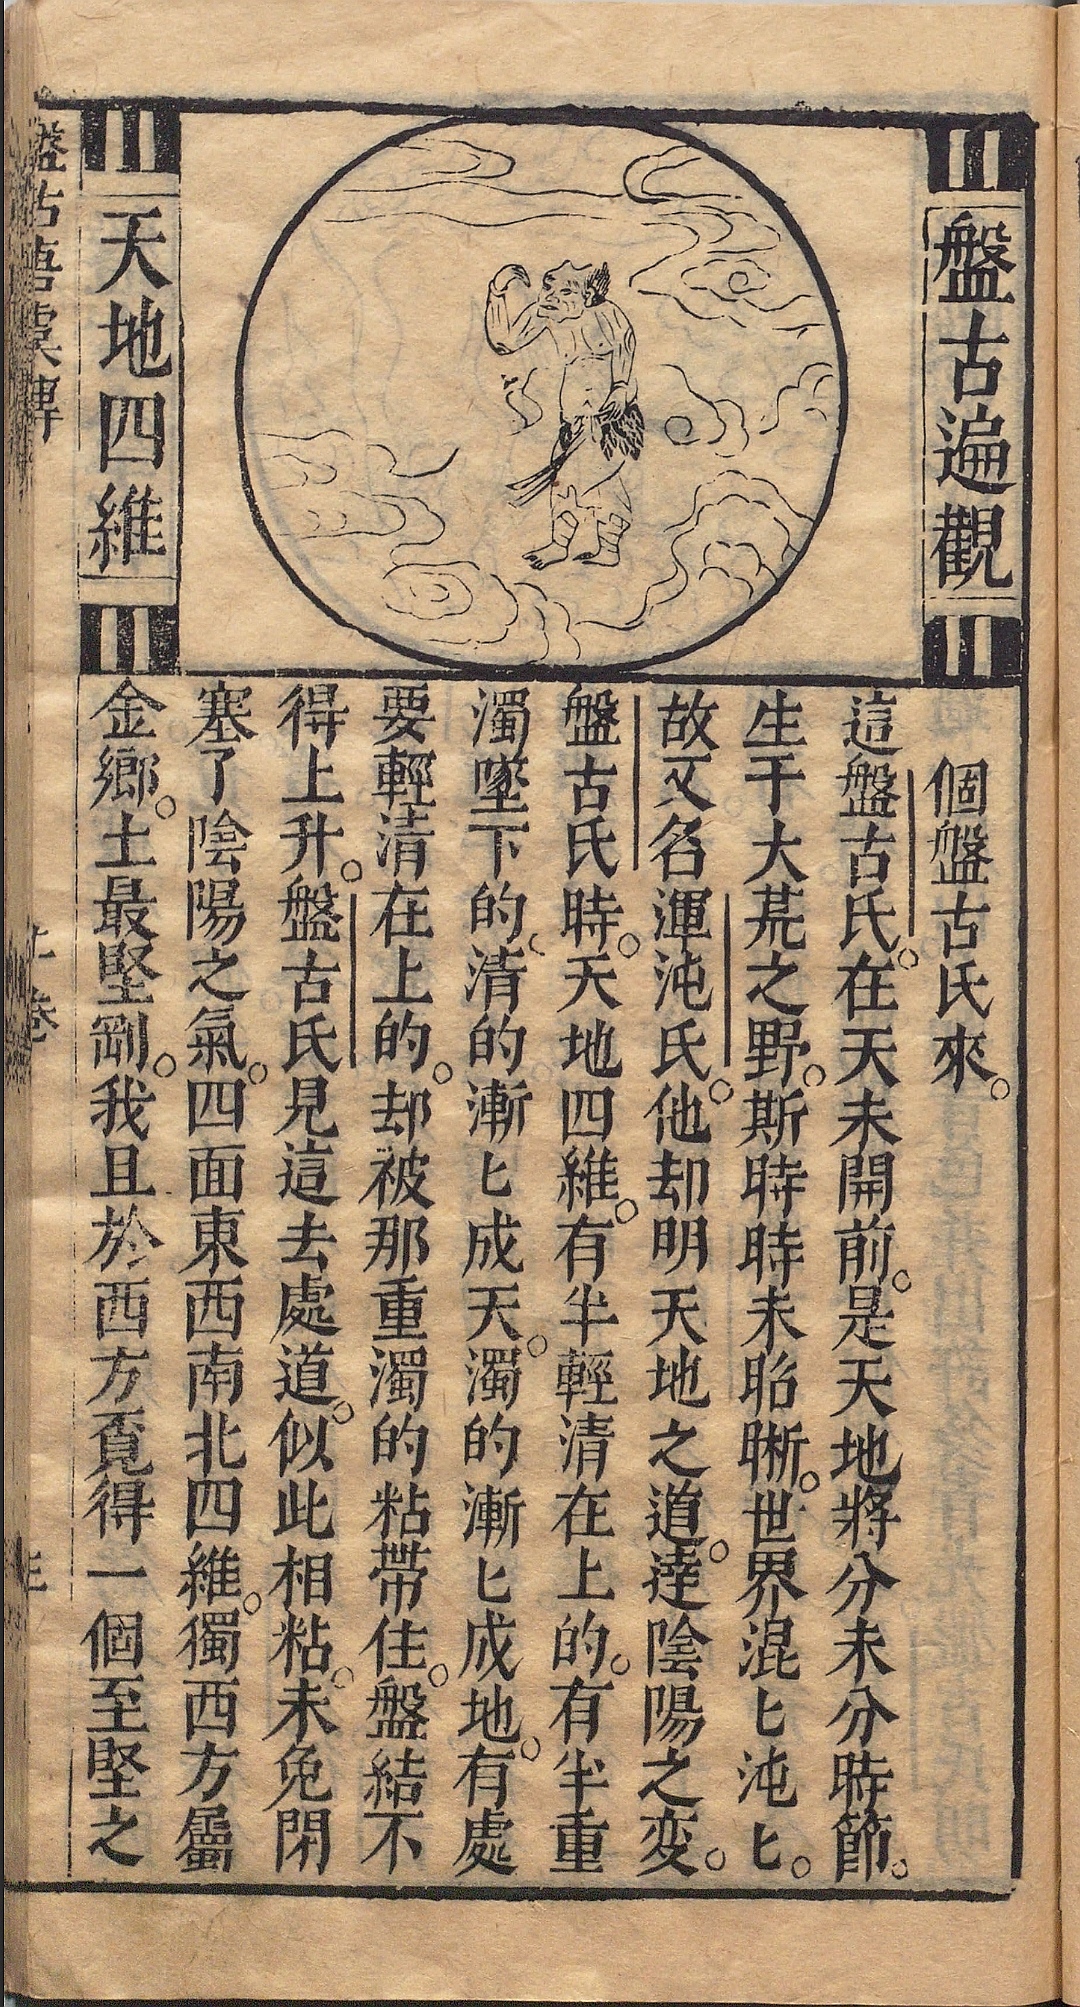 盤古遍觀
天地四維
個盤古氏來。
這盤古氏。在天未開前。是天地將分未分時節。
生于大荒之野。斯時時未昭晰。世界混匕沌匕。
故又名渾沌氏。他却明天地之道。達陰陽之変。
盤古氏時。天地四維。有半輕清在上的。有半重
濁墜下的、清的漸匕成天。濁的漸匕成地。有處
要輕清在上的。却被那重濁的粘帶住。盤結不
得上升。盤古氏見這去處道。似此相粘。未免閉
塞了陰陽之氣。四面東西南北四維。獨西方屬
金鄉。土最堅剛。我且於西方覔得一個至堅之
盤古唐虞傳
上卷